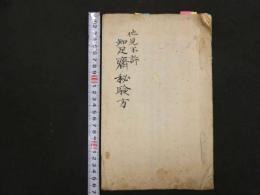 他見不許
知足齋秘験方